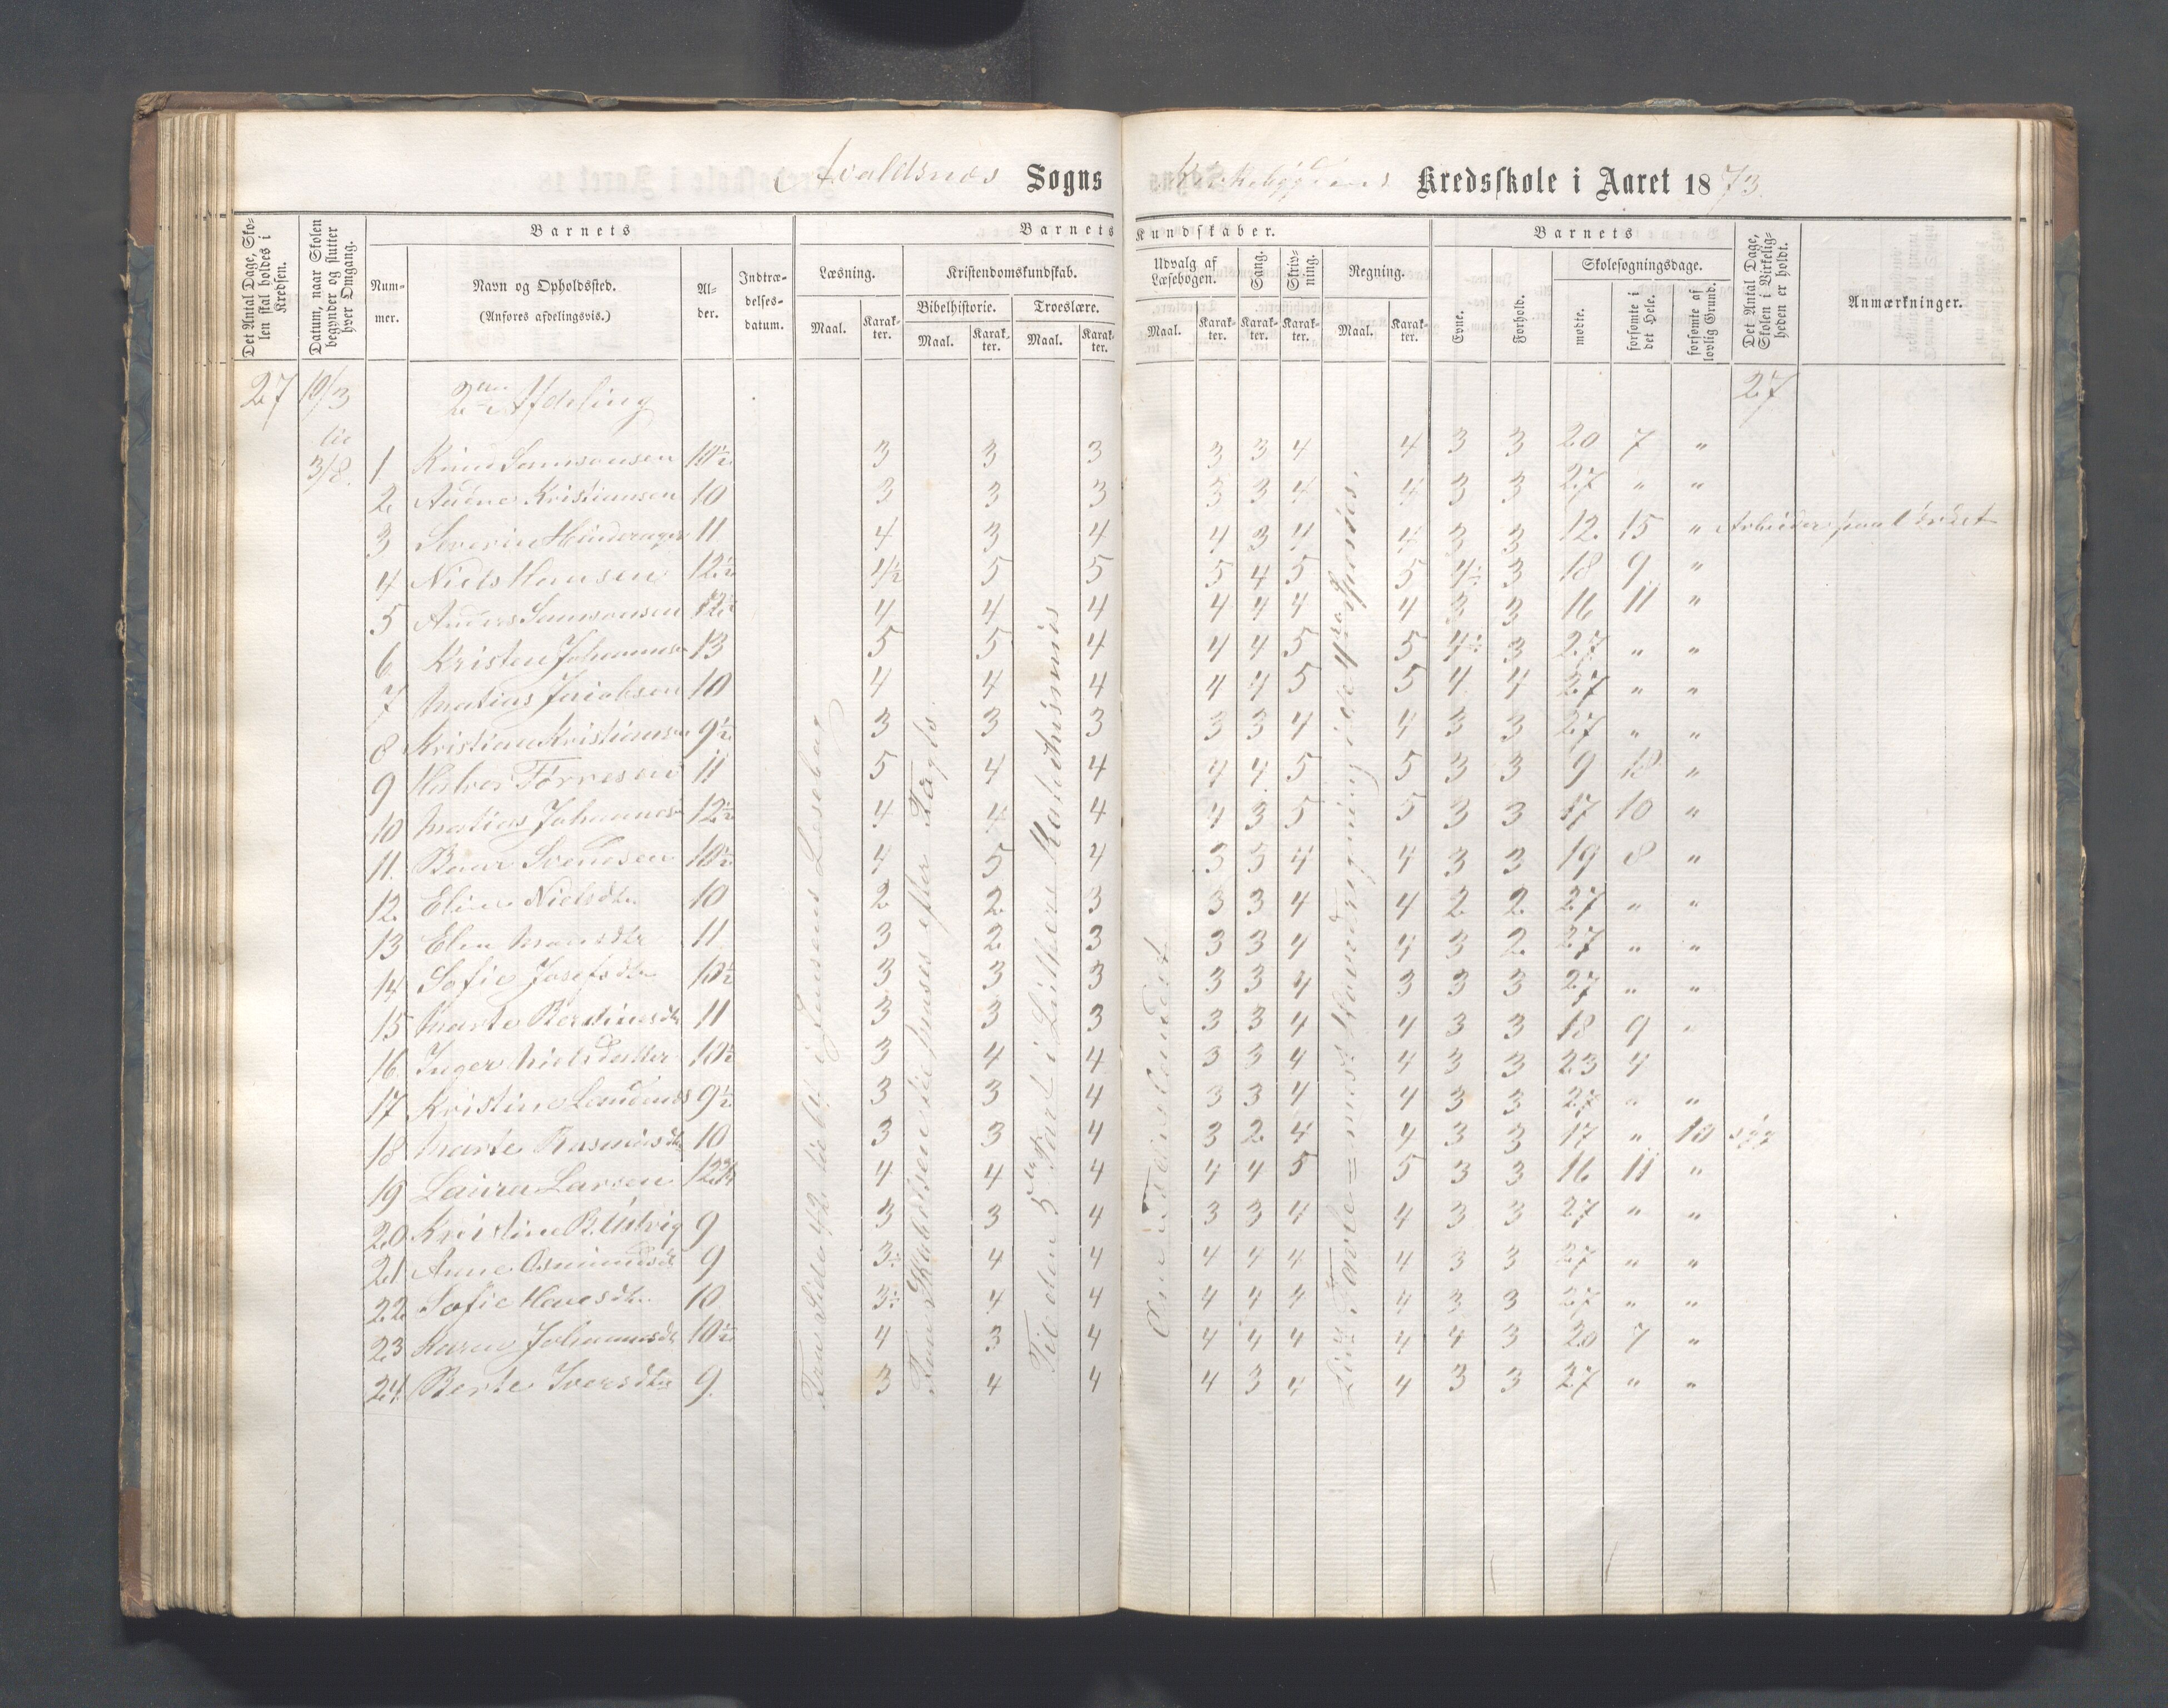 Avaldsnes Sogns Kirkebygdens Kredsskole i Aaret 1873.
Det Antal Dage, Skolen skal holdes i Kredsen.
Datum, naar Skolen begynder og slutter hver Omgang.
Barnets
Nummer.
Navn og Opholdssted.
(Anføres afdelingsvis.)
Alder.
Indtrædelsesdatum.
Barnets Kundskaber.
Læsning.
Maal.
Karakter.
Kristendomskundskab.
Bibelhistorie.
Maal.
Karakter.
Troeslære.
Maal.
Karakter.
Udvalg af Læsebogen.
Maal.
Karakter.
Sang.
Karakter.
Skrivning.
Karakter.
Regning.
Maal.
Karakter.
Barnets
Evne.
Forhold.
Skolesøgningsdage.
mødte.
forsømte i det Hele.
forsømte af lovlig Grund.
Det Antal Dage, Skolen i Virkeligheden er holdt.
Anmærkninger.
27 19/3 2den Afdeling 27
til 3/8.
1 Knud Samsonsen 10½ 3 3 3 3 3 4 4 3 3 20 7 "
2 Andre Kristiansen 10 3 3 3 3 3 4 4 3 3 27 " "
3 Severin 11 4 3 4 4 3 4 4 3 3 12 15 " Arbeider paa
4 Niels Hansen 12½ 4½ 5 5 5 4 5 5 4÷ 3 18 9 "
5 Anders Samsonsen 12½ 4 4 4 4 4 4 4 3 3 16 11 "
6 Kristen Johannes 13 5 5 4 4 4 5 5 4÷ 3 27 " "
7 Matias Jacobsen 10 4 4 4 4 4 5 5 4 4 27 " "
8 Kristian Kristiansen 9½ 3 3 3 3 3 4 4 3 3 27 " "
9 Halvor Tørresen 11 5 4 4 4 4 5 5 3 3 9 18 "
10 Matias Johannes 12½ 4 4 4 4 3 5 5 3 3 17 10 "
11 Svendsen 10½ 4 5 4 5 5 4 4 3 3 19 8 "
12 Eline Nielsdtr 10 2 2 3 3 3 4 4 2 2 27 " "
13 Elen Monsdtr 11 3 2 3 3 3 4 4 3 2 27 " "
14 Sofie Josefsdtr 10½ 3 3 3 3 3 4 3 3 3 27 " "
15 Marte Berdinesdtr 11 3 3 3 3 3 4 4 3 3 18 9 "
16 Inger Nielsdatter 10½ 3 4 4 3 3 4 4 3 3 23 4
17 Kristine 9½ 3 3 4 3 3 4 4 3 3 27 " "
18 Marte Rasmusdtr 10 3 3 4 3 2 4 4 3 3 17 " 10 syg
19 Laura Larsen 12¾ 4 4 4 4 4 5 5 3 3 16 11 "
20 Kristine B. Utvig 9 3 3 4 3 3 4 4 3 3 27 " "
21 Anne Osmundsdtr 9 3÷ 4 4 4 4 4 4 3 3 27 " "
22 Sofie Hansdtr 10 3÷ 4 4 4 4 4 4 3 3 27 " "
23 Karen Johannesdtr 10½ 4 3 4 4 4 4 4 4 3 20 7 "
24 Berte Iversdtr 9 3 4 4 4 3 4 4 3 3 27 " "
Fra Side 42 til i Jensens Læsebog
Fra Skabelsen til Moses efter Vogts
Til den 5te Part i Luthers Katekismus
Om Fædrelandet
Tavle= med Hovedregning